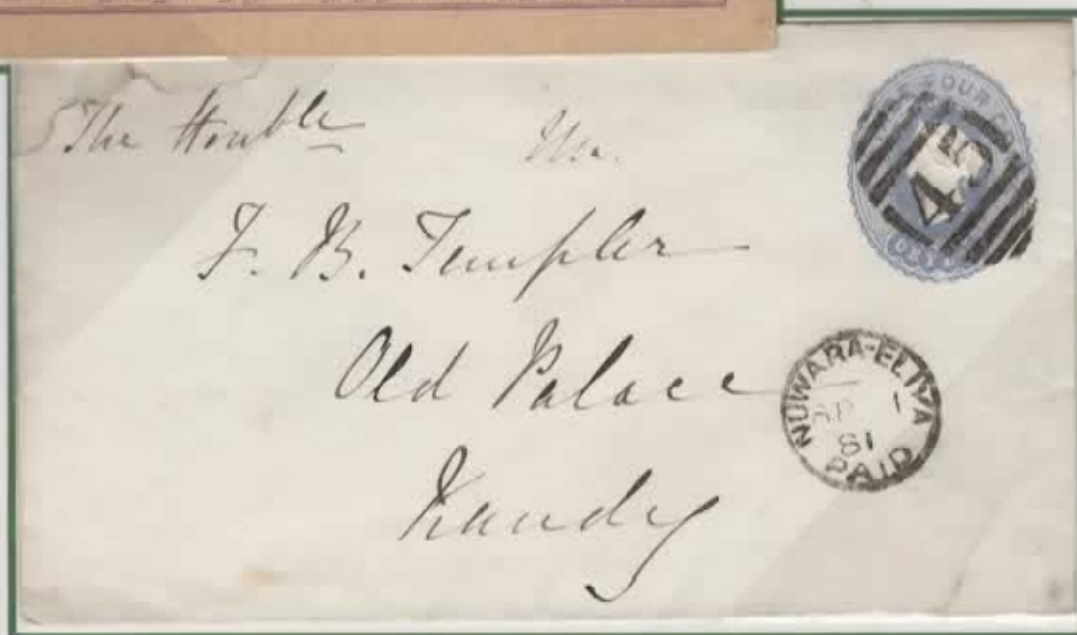 The Honble
F. B. Templer
Old Palace
Kandy
FOUR
45
NUWARA-ELIYA
1
81
PAID